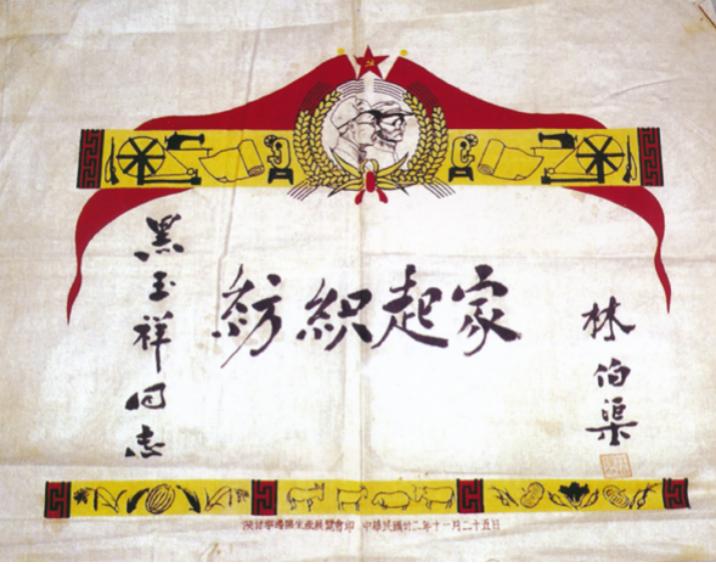 黑玉祥同志
紡織起家
林伯渠
陝甘寧邊區生產展覽會印 中華民國卅二年十一月二十五日